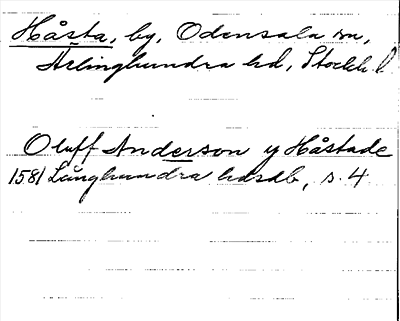 Håsta, by, Odensala sn,
Ärlinghundra hd, Stockh. l
Oluff Anderson y Håstade
1581 Långhundra hdsdb, s. 4